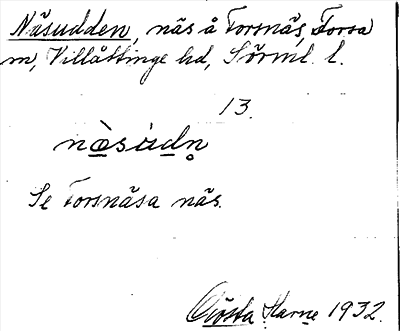 Näsudden, näs å Torsnäs, Forsa
m, Villåttinge hd, Sörml. l.
13.
nǜsùdn̥
Se Torsnäsa näs.
Gösta Harne 1932.